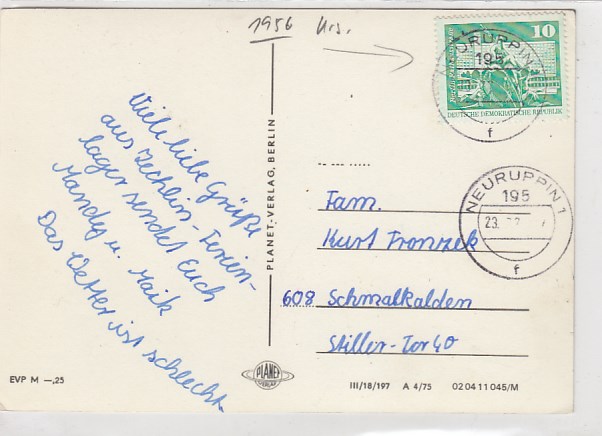 1956 Krs.
10
NEURUPPIN 1
195
DEUTSCHE DEMOKRATISCHE REPUBLIK
f
NEURUPPIN 1
195
23.
f
Viele liebe Grüße
aus Zechlin-Ferien-
lager sendet Euch
Mandy u. Maik
Das Wetter ist schlecht.
PLANET-VERLAG, BERLIN
Fam.
Kurt Fronzek
608 Schmalkalden
Stiller-Tor 40
EVP M —,25
PLANET
VERLAG
III/18/197 A 4/75 02 04 11 045/M